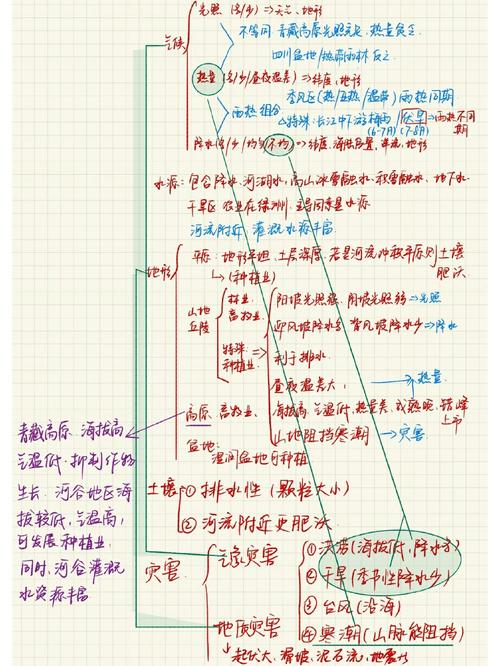 光照 (多/少) => 天气、地形
不等同 青藏高原光照充足，热量贫乏
四川盆地/热带雨林 反之
气候
热量 (多/少/昼夜温差) => 纬度、地形
季风区 (热/亚热/温带) 雨热同期
雨热组合
特殊：长江中下游梅雨/伏旱 => 雨热不同期
(6-7月) (7-8月)
降水 (多/少/均匀/不均) => 纬度、海陆位置、地形
水源：包含降水、河湖水、高山冰雪融水、积雪融水、地下水
干旱区 农业在绿洲，主导因素是水源
河流附近 灌溉水源丰富
地形
平原：地形平坦、土层深厚，若是河流冲积平原则土壤肥沃
↳(种植业)
山地丘陵
林业、畜牧业、
阳坡光照强、阴坡光照弱 => 光照
迎风坡降水多 背风坡降水少 => 降水
特殊种植业：
利于排水
昼夜温差大，
热量
高原：畜牧业、
海拔高、气温低、热量差、成熟晚、错峰上市
山地阻挡寒潮 → 灾害
盆地：
湿润盆地可种植
青藏高原、海拔高
气温低，抑制作物
生长，河谷地区海
拔较低，气温高，
可发展种植业，
同时，河谷灌溉
水资源丰富
土壤 ① 排水性 (颗粒大小)
② 河流附近更肥沃
灾害
气象灾害
① 洪涝 (海拔低、降水多)
② 干旱 (季节性降水少)
③ 台风 (沿海)
④ 寒潮 (山脉能阻挡)
地质灾害
↳ 起伏大、滑坡、泥石流、地震